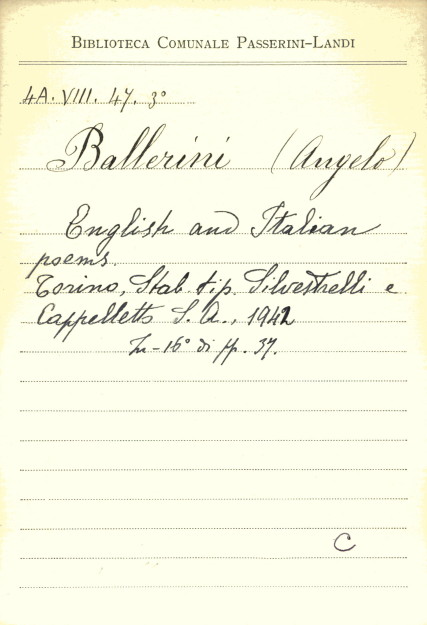 BIBLIOTECA COMUNALE PASSERINI-LANDI
4A. VIII. 47. 3°
Ballerini (Angelo)
English and Italian
poems.
Torino, Stab. tip. Silvestrelli e
Cappelletto S. A., 1942
In-16° di pp. 37.
C